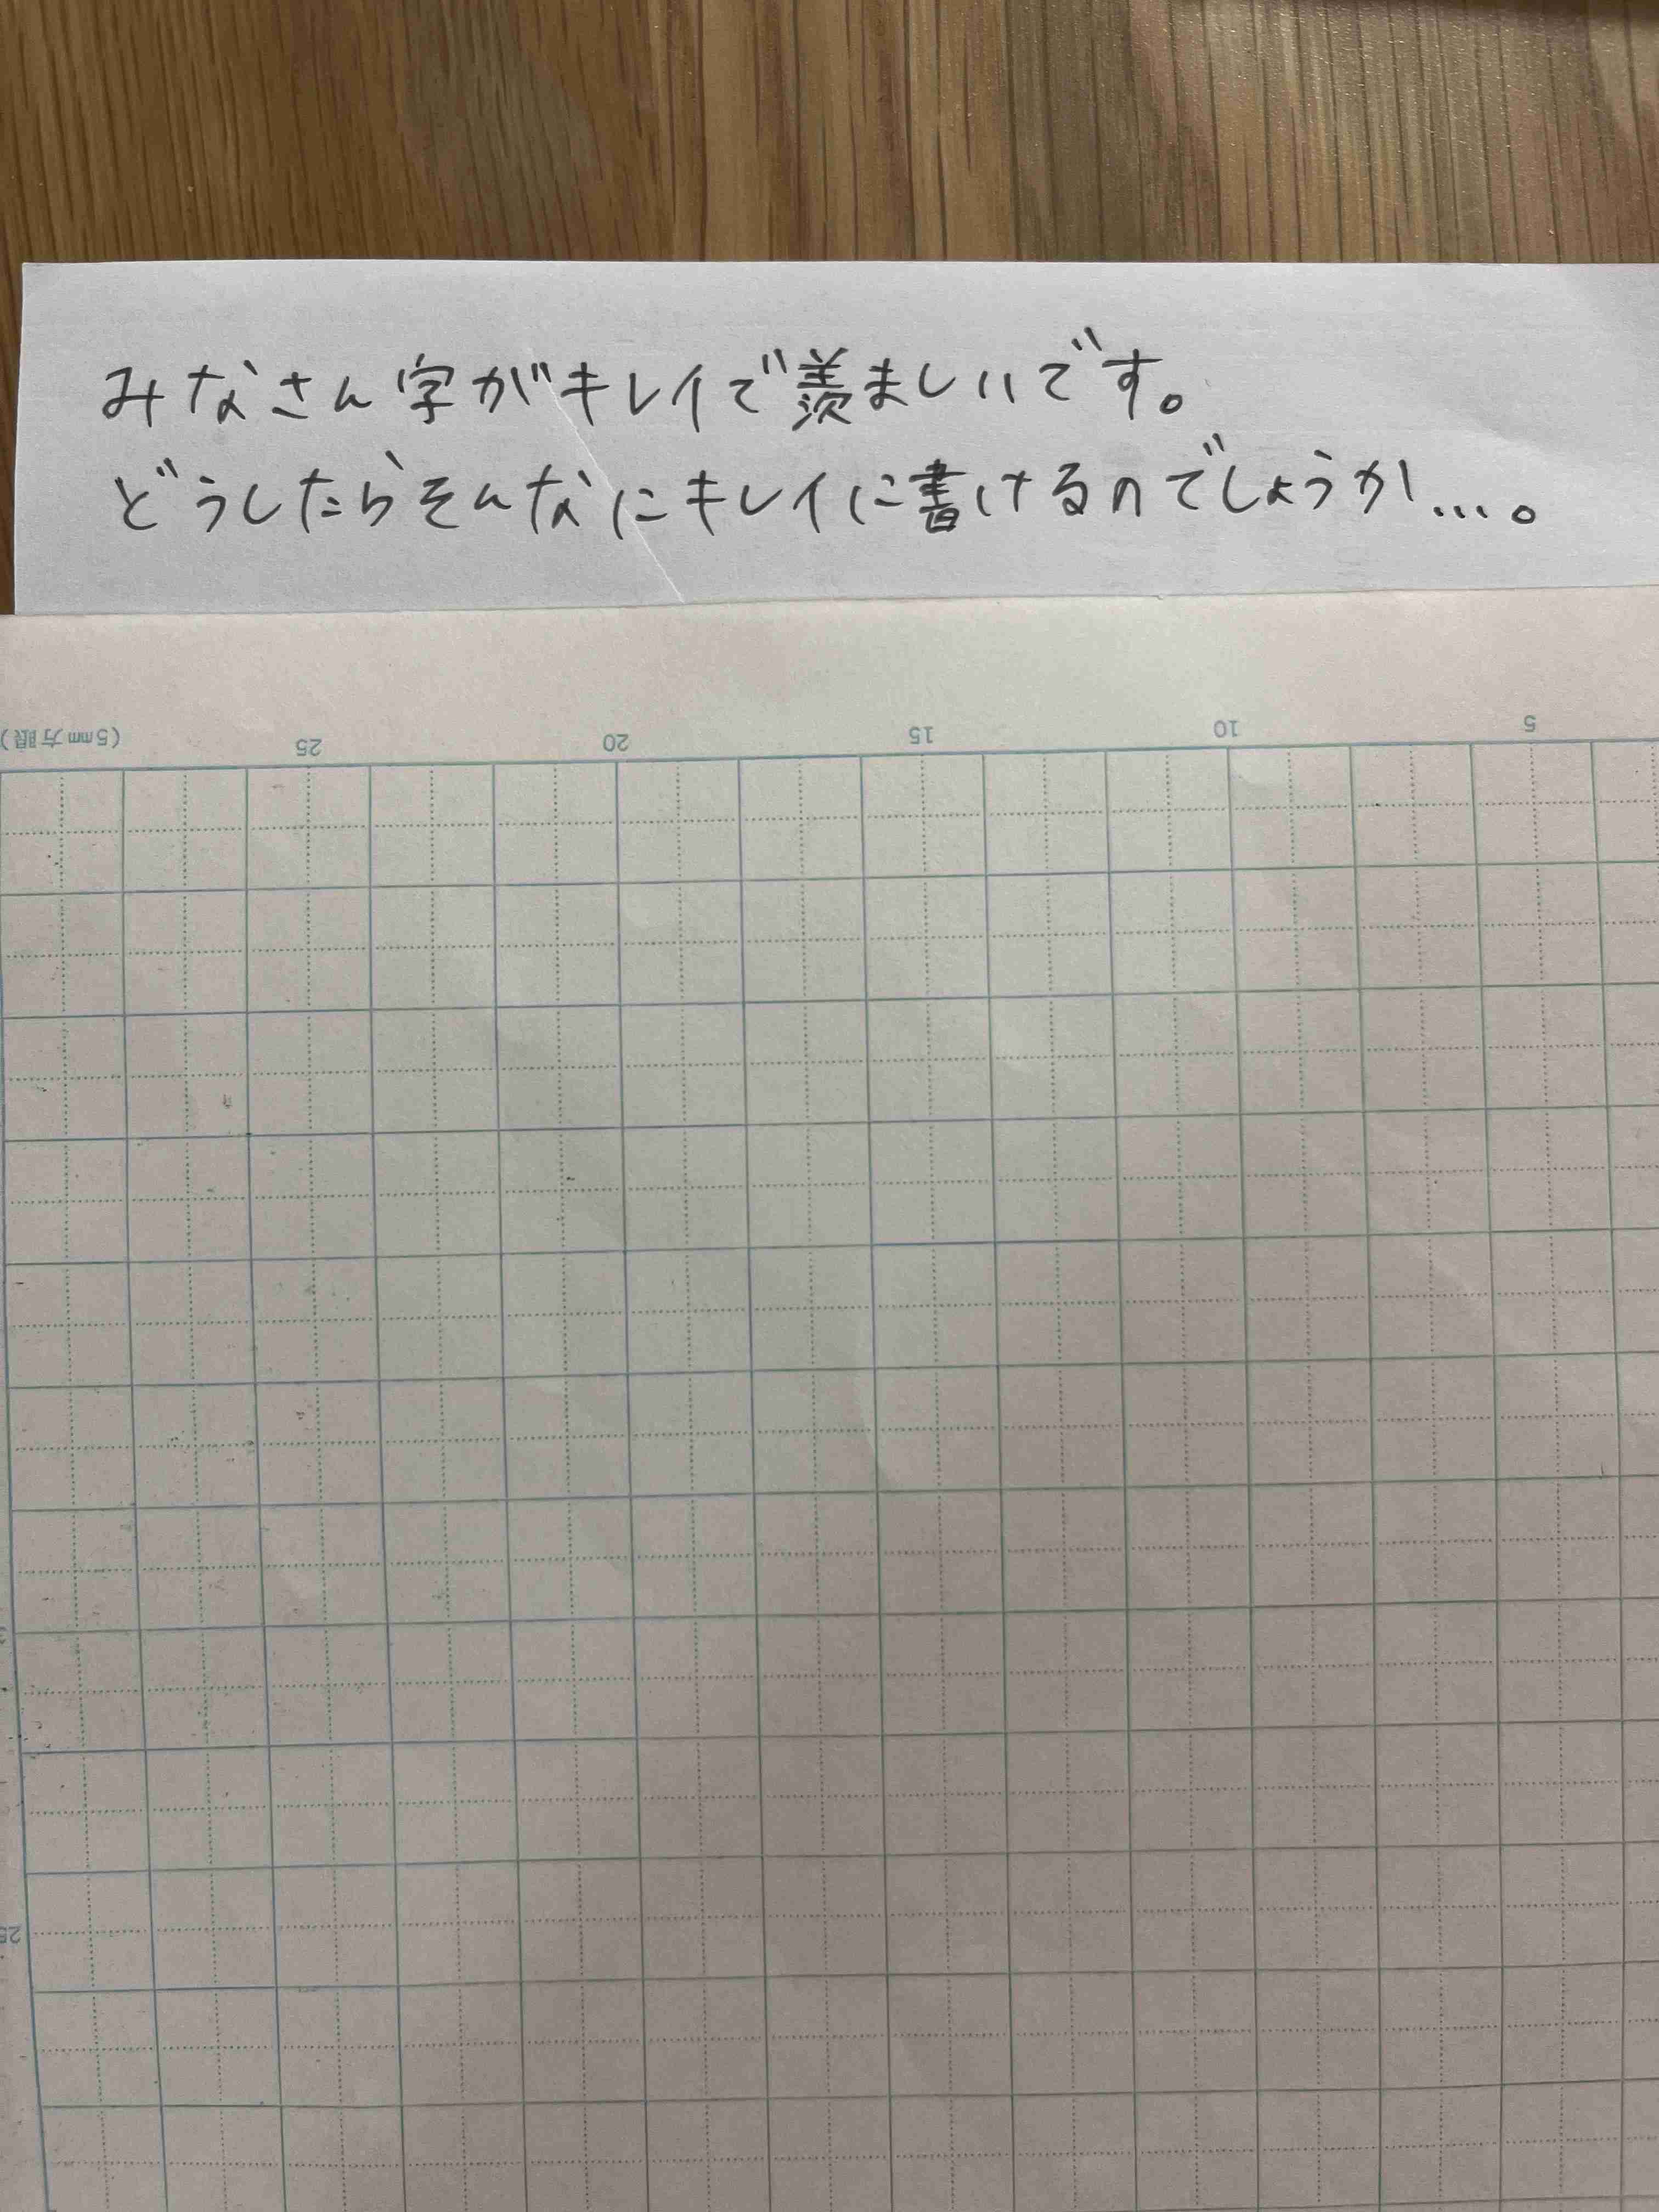 みなさん字がキレイで羨ましいです。
どうしたらそんなにキレイに書けるのでしょうか…。
(5mm方眼) 25 20 15 10 5
25